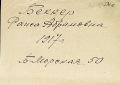 Беккер
Раиса Абрамовна
1917 г
Б. Морская 50